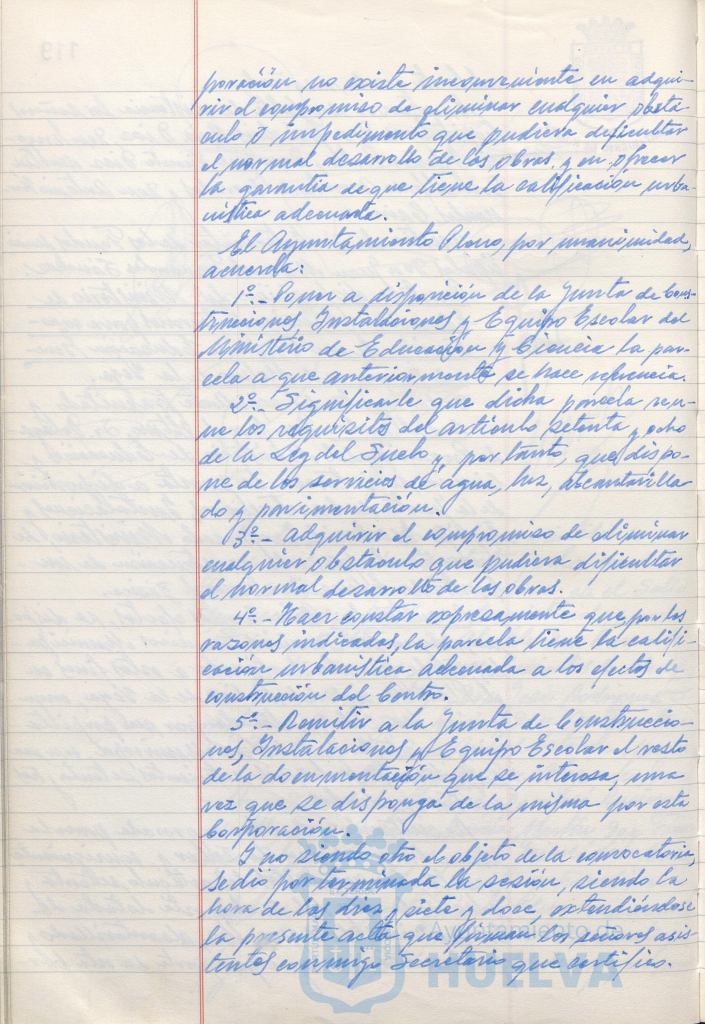 poración no existe inconveniente en adqui-
rir el compromiso de eliminar cualquier obstá-
culo o impedimento que pudiera dificultar
el normal desarrollo de las obras y en ofrecer
la garantía de que tiene la calificación urba-
nística adecuada.
El Ayuntamiento Pleno, por unanimidad,
acuerda:
1º.- Poner a disposición de la Junta de Cons-
trucciones, Instalaciones y Equipo Escolar del
Ministerio de Educación y Ciencia la par-
cela a que anteriormente se hace referencia.
2º.- Significarle que dicha parcela reu-
ne los requisitos del artículo setenta y ocho
de la Ley del Suelo y, por tanto, que dispo-
ne de los servicios de agua, luz, alcantarilla-
do y pavimentación.
3º.- Adquirir el compromiso de eliminar
cualquier obstáculo que pudiera dificultar
el normal desarrollo de las obras.
4º.- Hacer constar expresamente que, por las
razones indicadas, la parcela tiene la califi-
cación urbanística adecuada a los efectos de
construcción del Centro.
5º.- Remitir a la Junta de Construccio-
nes, Instalaciones y Equipo Escolar el resto
de la documentación que se interesa, una
vez que se disponga de la misma por esta
Corporación.
Y no siendo otro el objeto de la convocatoria,
se dió por terminada la sesión, siendo la
hora de las diez y siete y doce, extendiéndose
la presente acta que firman los señores asis-
tentes conmigo Secretario que certifico.
Ayuntamiento de
HUELVA